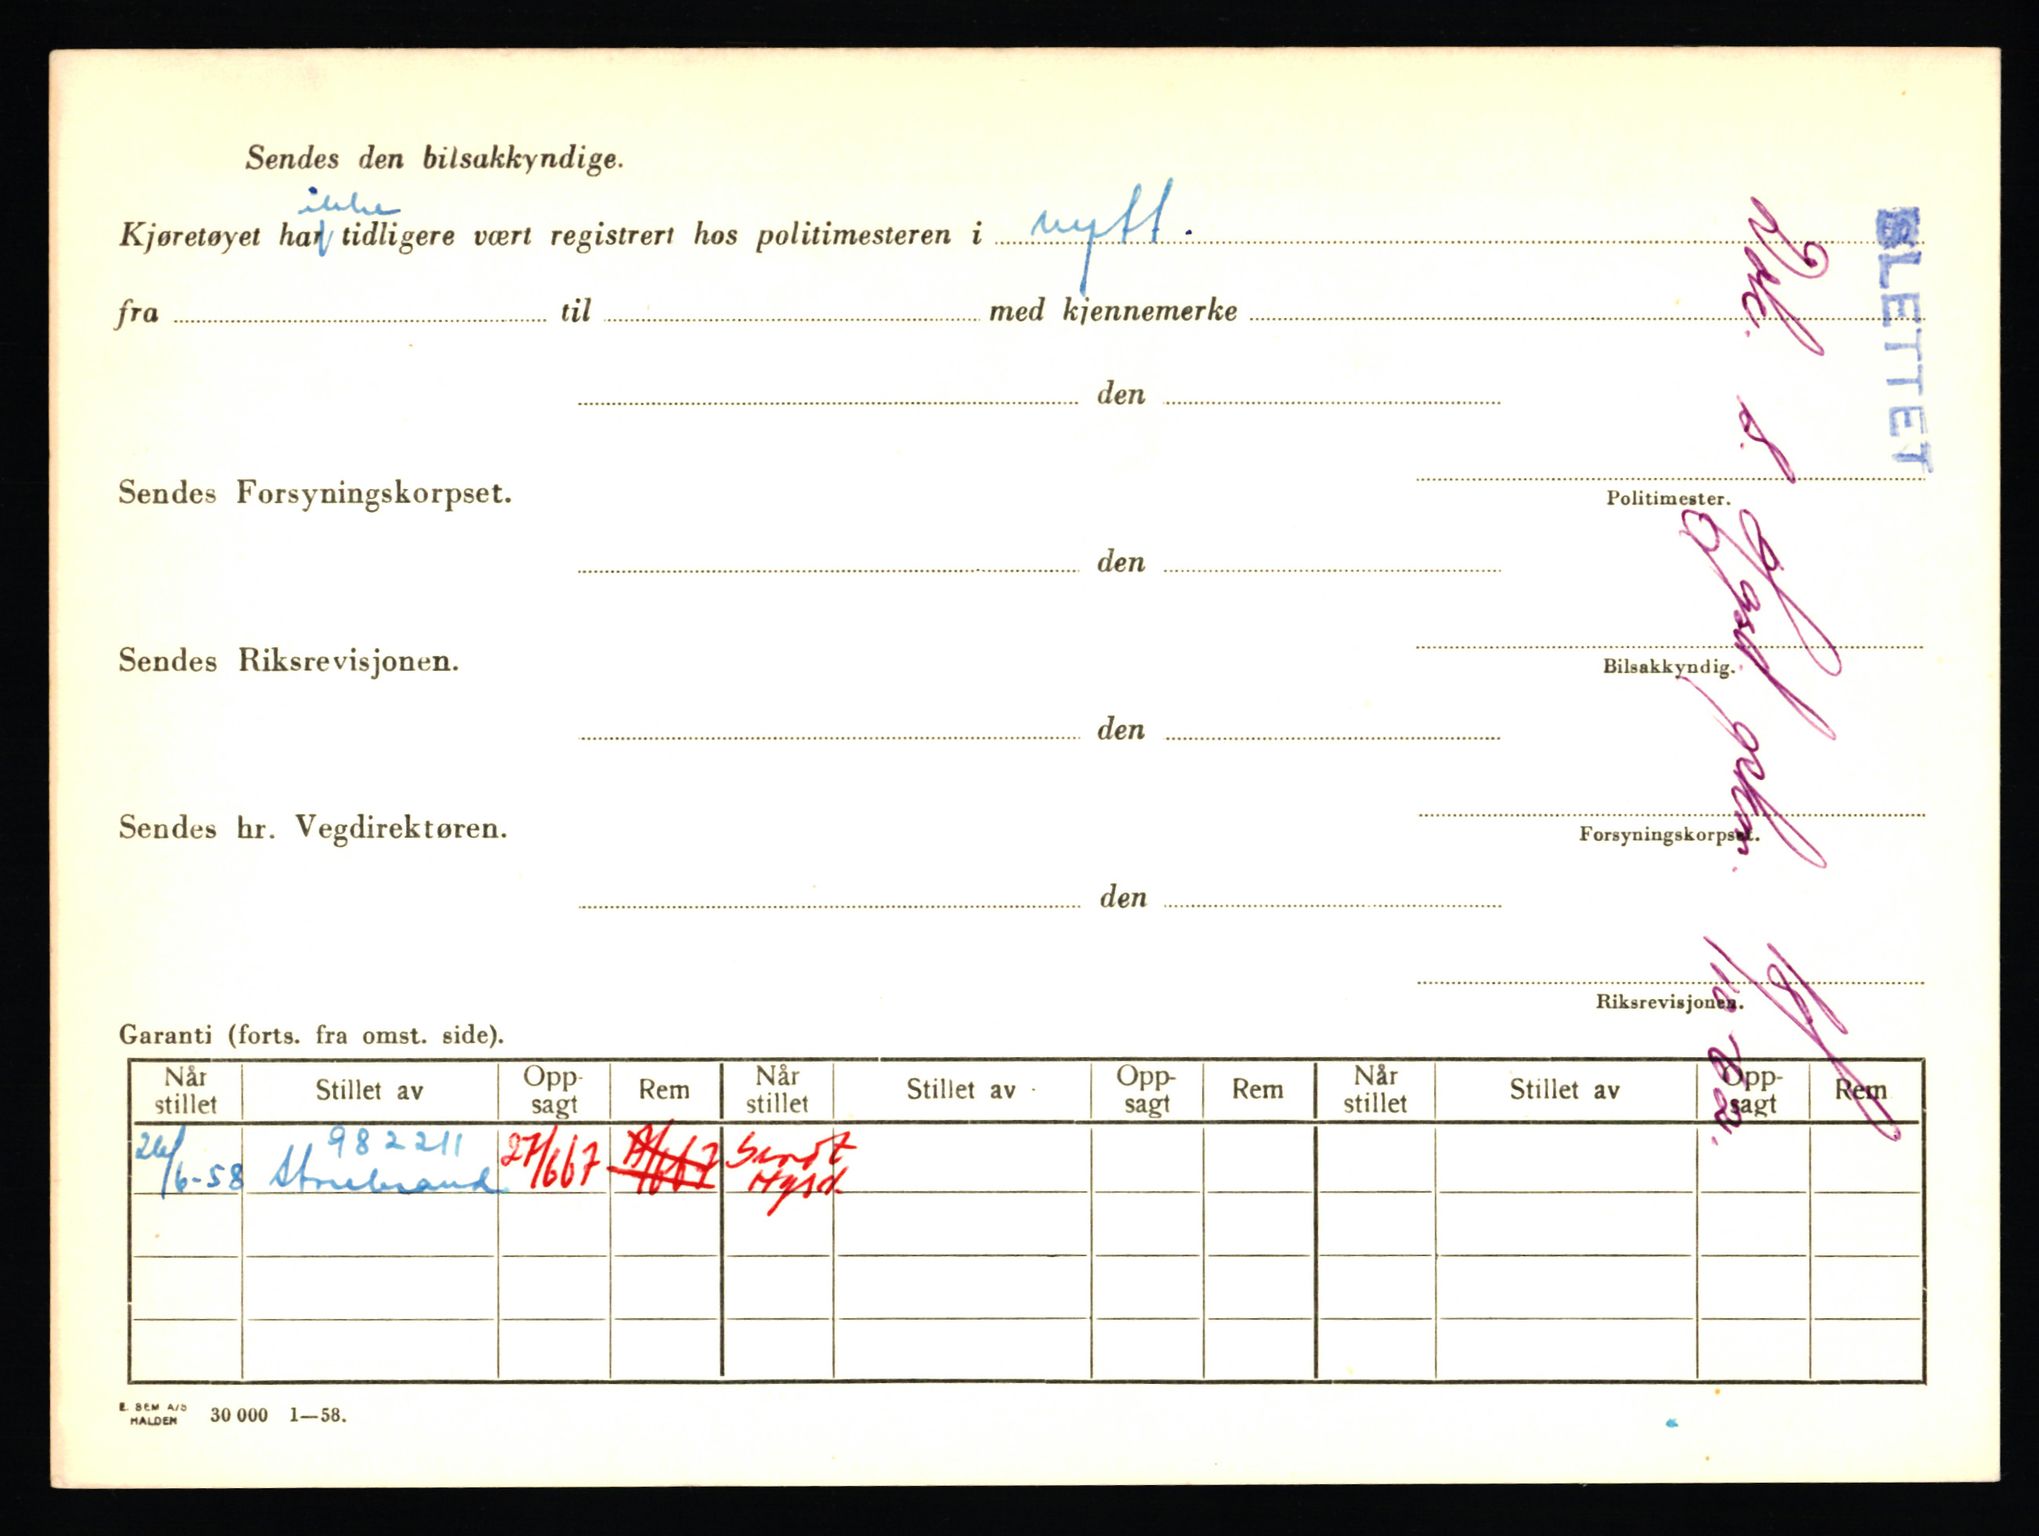 Sendes den bilsakkyndige.
ikke
Kjøretøyet har tidligere vært registrert hos politimesteren i nytt.
fra til med kjennemerke
den
Sendes Forsyningskorpset.
Politimester.
den
Sendes Riksrevisjonen.
Bilsakkyndig.
den
Sendes hr. Vegdirektøren.
Forsyningskorpset.
den
Riksrevisjonen.
SLETTET
Garanti (forts. fra omst. side).
Når stillet Stillet av Opp-sagt Rem Når stillet Stillet av Opp-sagt Rem Når stillet Stillet av Opp-sagt Rem
26/6-58 982211 Storebrand 27/667
E. SEM A/S
HALDEN 30 000 1—58.